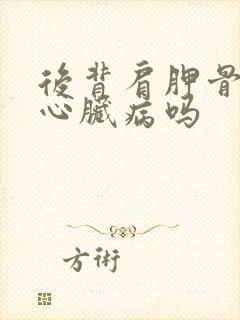 後背肩胛骨
心臟病吗
方術